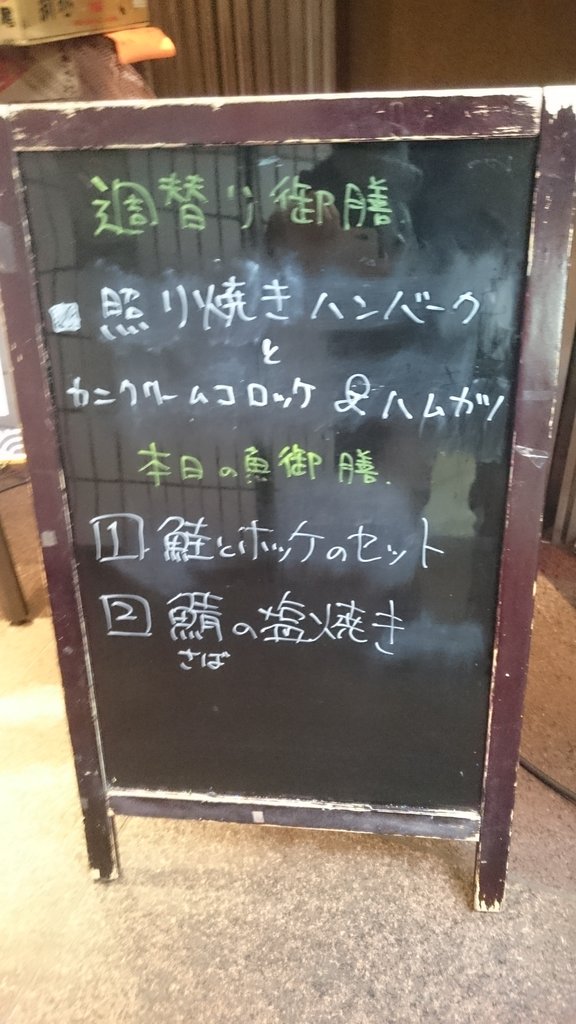 週替り御膳
照り焼きハンバーグ
と
カニクリームコロッケ & ハムカツ
本日の魚御膳
1 鮭とホッケのセット
2 鯖の塩焼き
さば